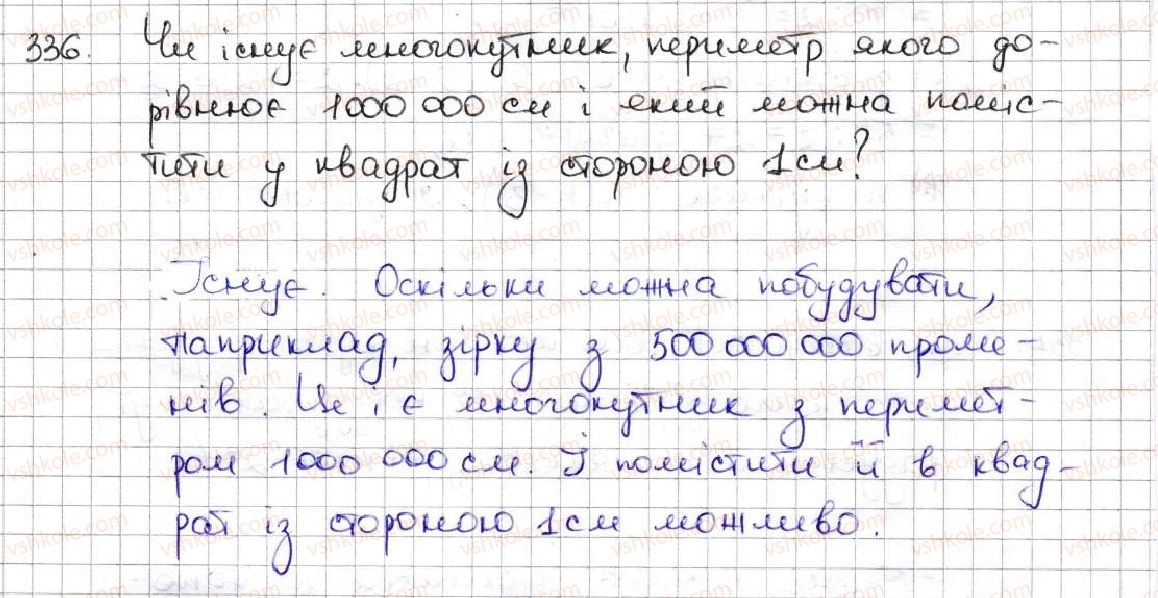 336. Чи існує многокутник, периметр якого до-
рівнює 1000 000 см і який можна поміс-
тити у квадрат із стороною 1см?
Існує. Оскільки можна побудувати,
наприклад, зірку з 500 000 000 проме-
нів. Це і є многокутник з перимет-
ром 1000 000 см. І помістити її в квад-
рат із стороною 1см можливо.